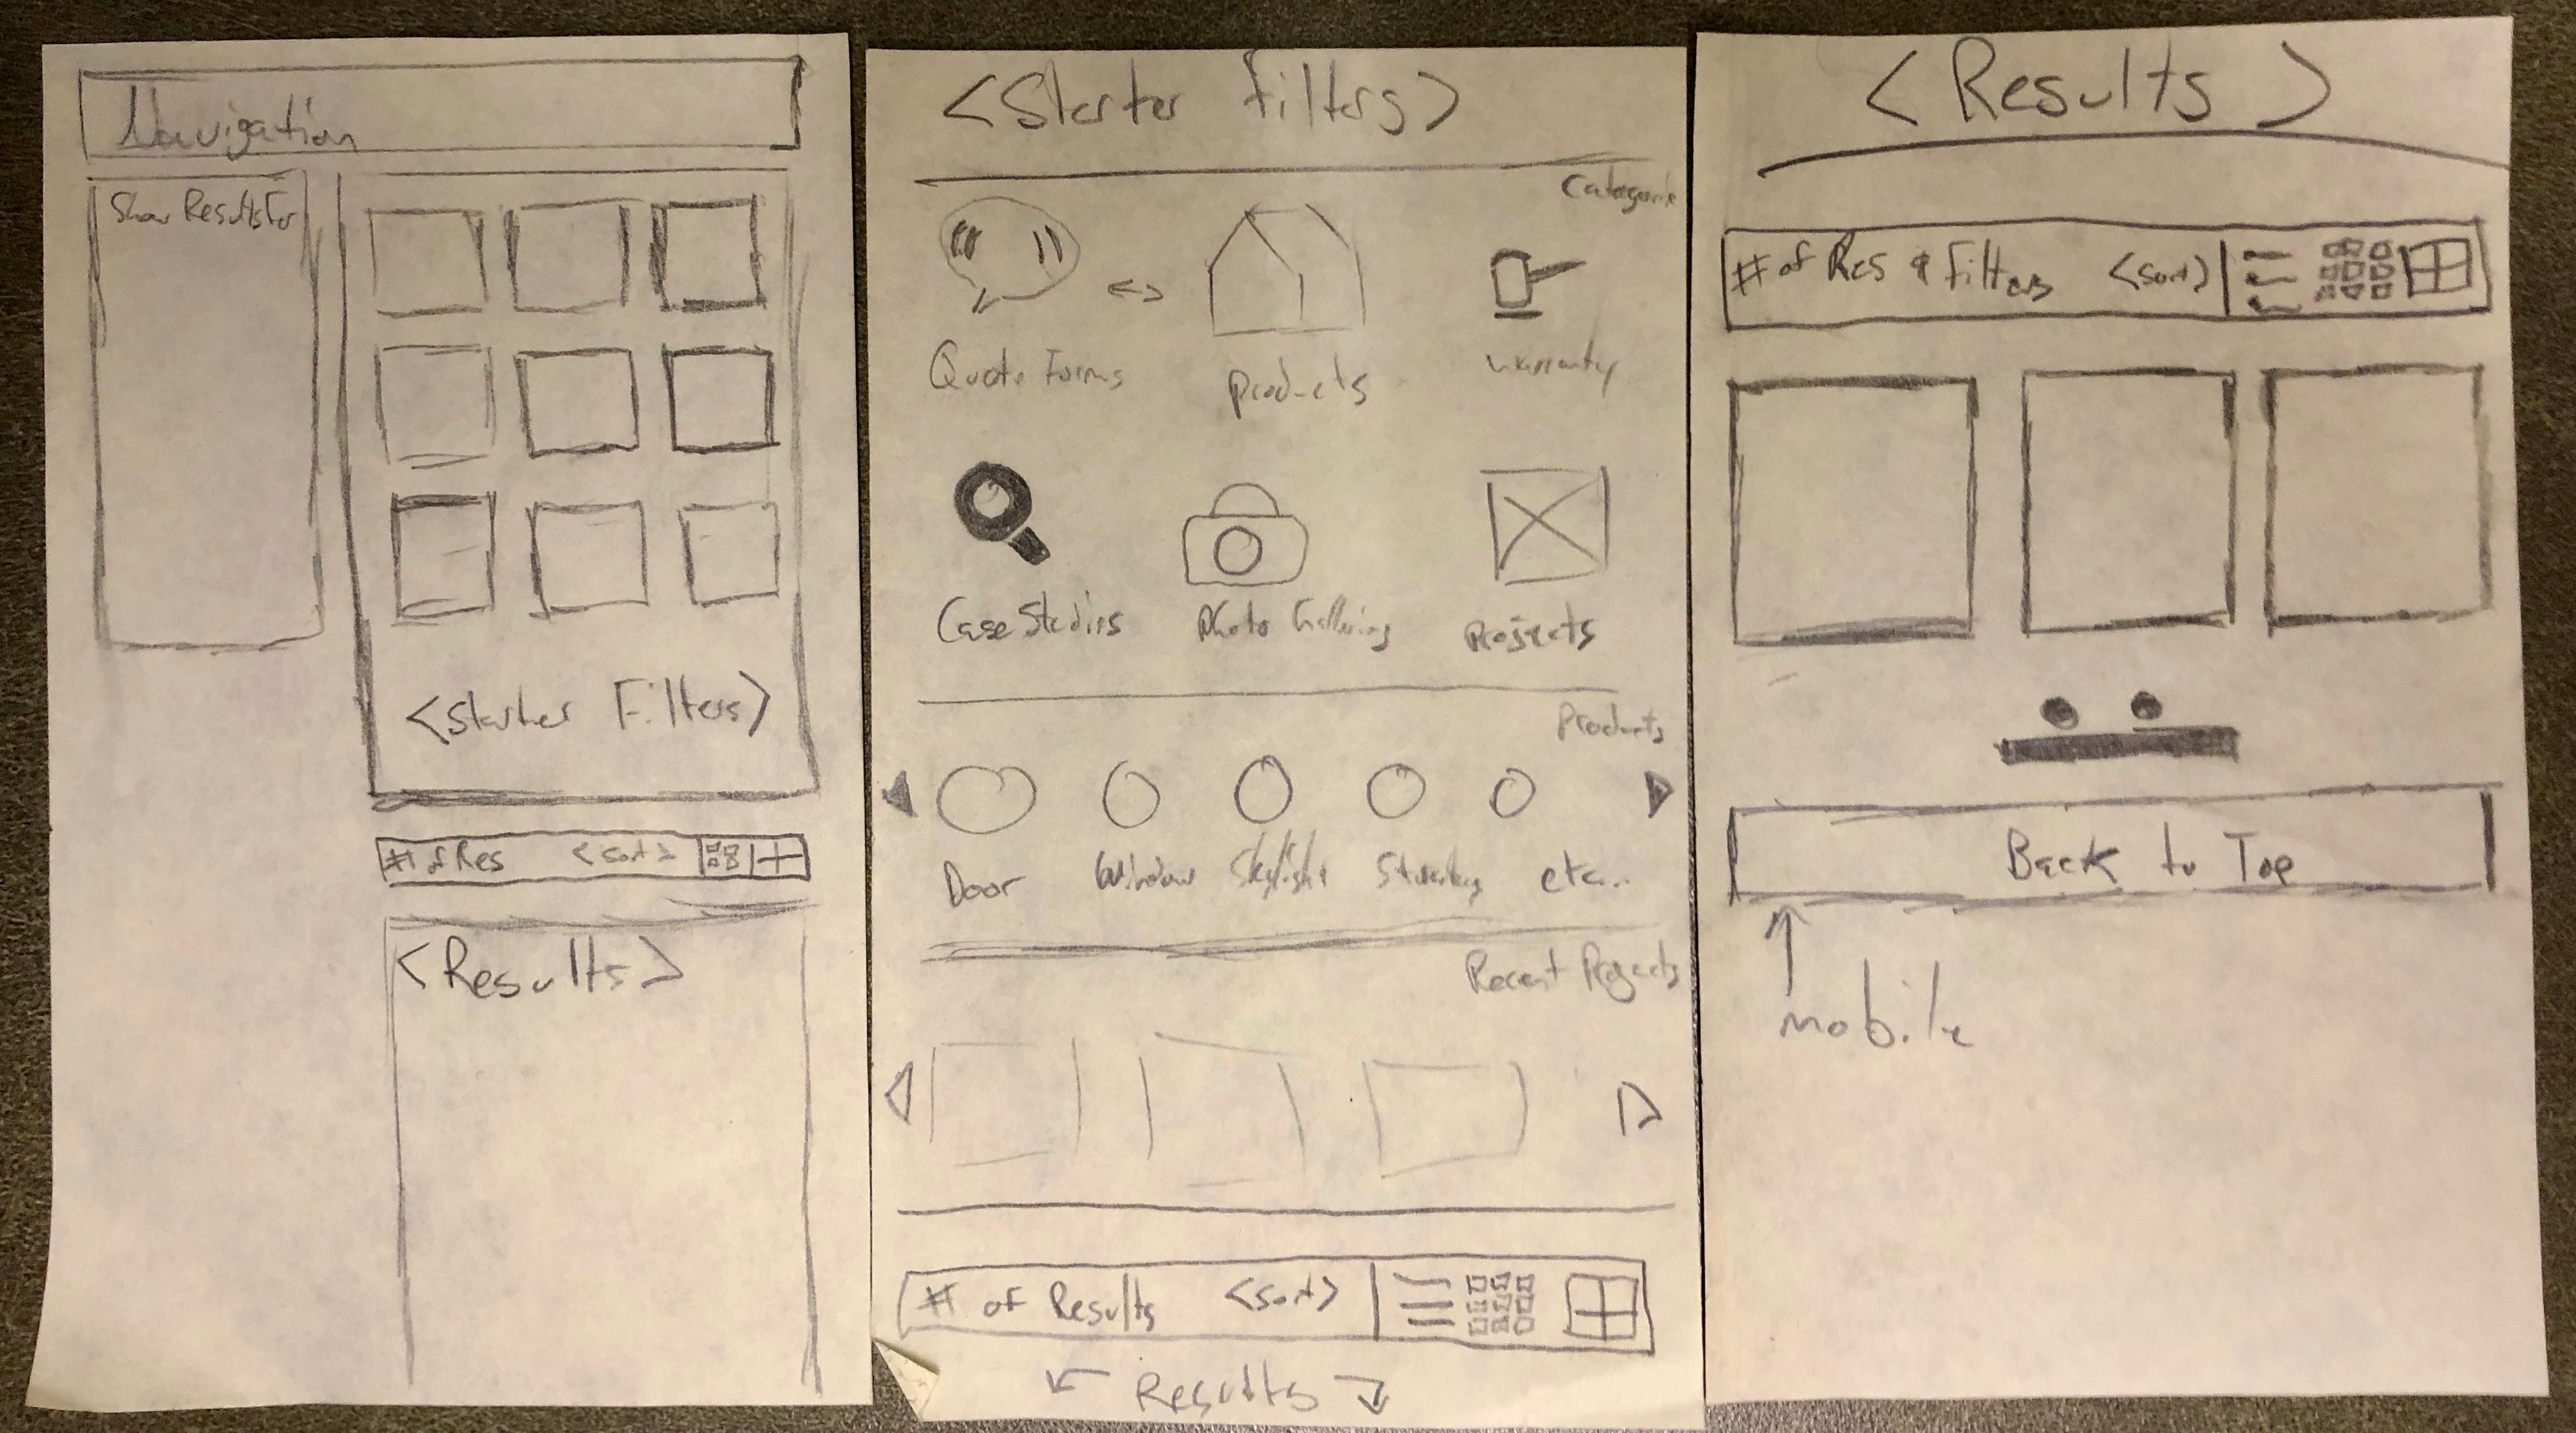 Navigation
Show Results For
<Starter Filters>
# of Res <sort>
<Results>
<Starter Filters>
Categorie
Quote Forms
Products
warranty
Case Studies
Photo Galleries
Projects
Products
Door
Window
Skylight
etc...
Recent Projects
# of Results <sort>
Results
<Results>
# of Res & Filters <sort>
Back to Top
mobile